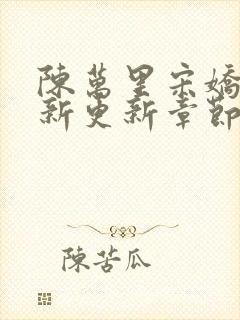 陳萬里宋嬌
新更新章節
陳苦瓜